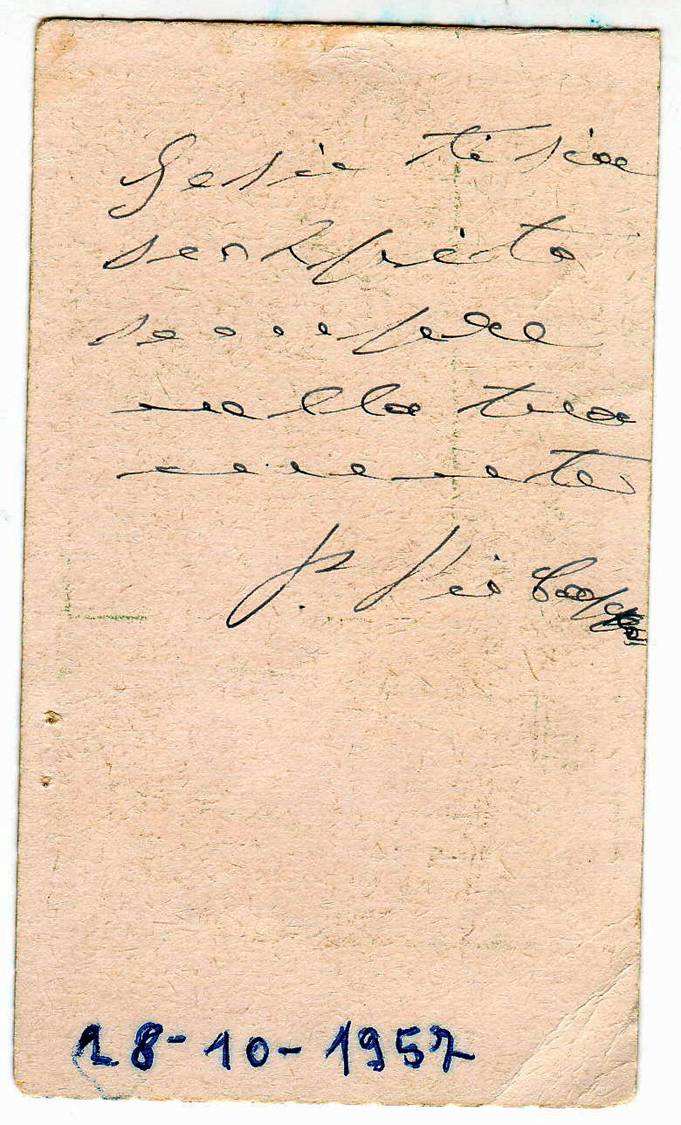 Gesù ti sia
scolpito
sempre
nella tua
mente
P. Pio Capp
28-10-1957